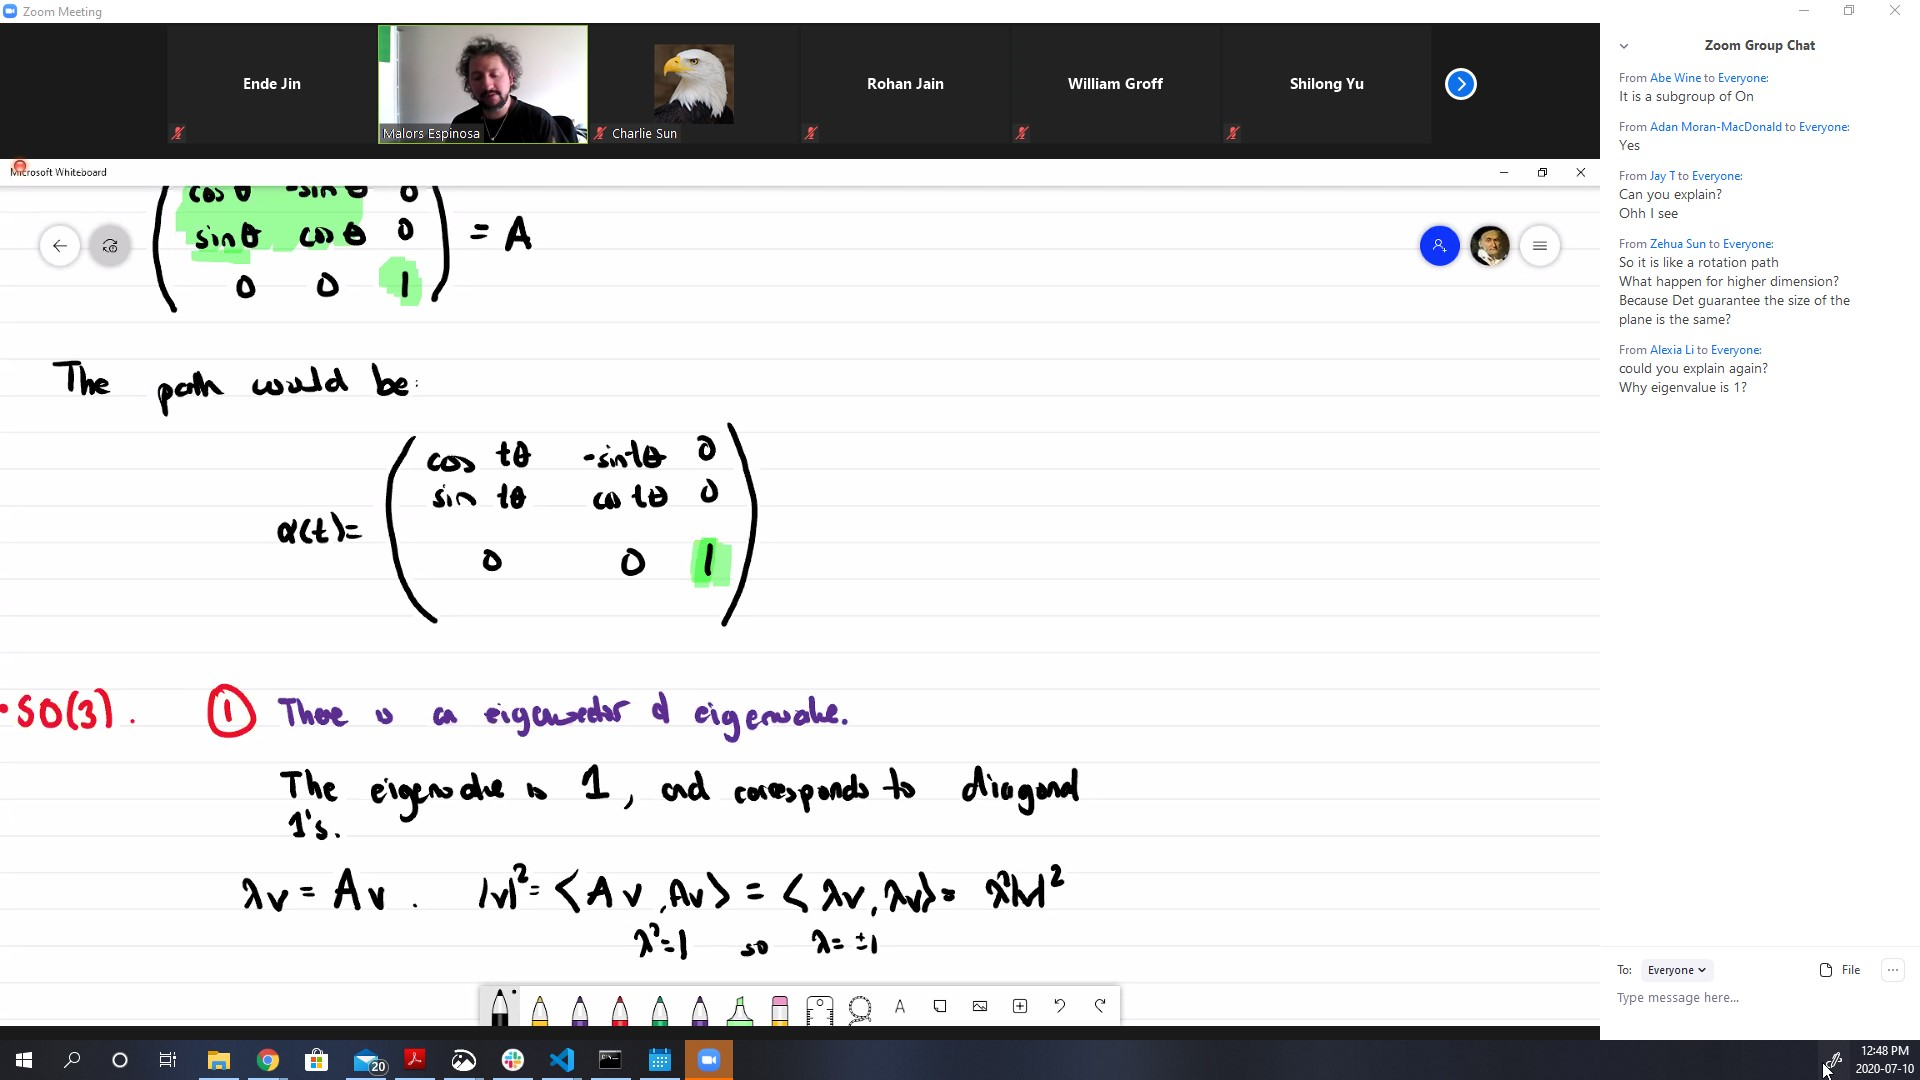 Zoom Meeting
Ende Jin
Malors Espinosa
Charlie Sun
Rohan Jain
William Groff
Shilong Yu
Microsoft Whiteboard
cos θ -sin θ 0
sin θ cos θ 0 = A
0 0 1
The path would be:
cos tθ -sin tθ 0
sin tθ cos tθ 0
α(t)=
0 0 1
• SO(3). ① There is an eigenvector & eigenvalue.
The eigenvalue is 1, and corresponds to diagonal
1's.
λv = Av. |v|²= <Av, Av> = <λv, λv> = λ²|v|²
λ²=1 so λ= ±1
Zoom Group Chat
From Abe Wine to Everyone:
It is a subgroup of On
From Adan Moran-MacDonald to Everyone:
Yes
From Jay T to Everyone:
Can you explain?
Ohh I see
From Zehua Sun to Everyone:
So it is like a rotation path
What happen for higher dimension?
Because Det guarantee the size of the
plane is the same?
From Alexia Li to Everyone:
could you explain again?
Why eigenvalue is 1?
To: Everyone File
Type message here...
20
12:48 PM
2020-07-10